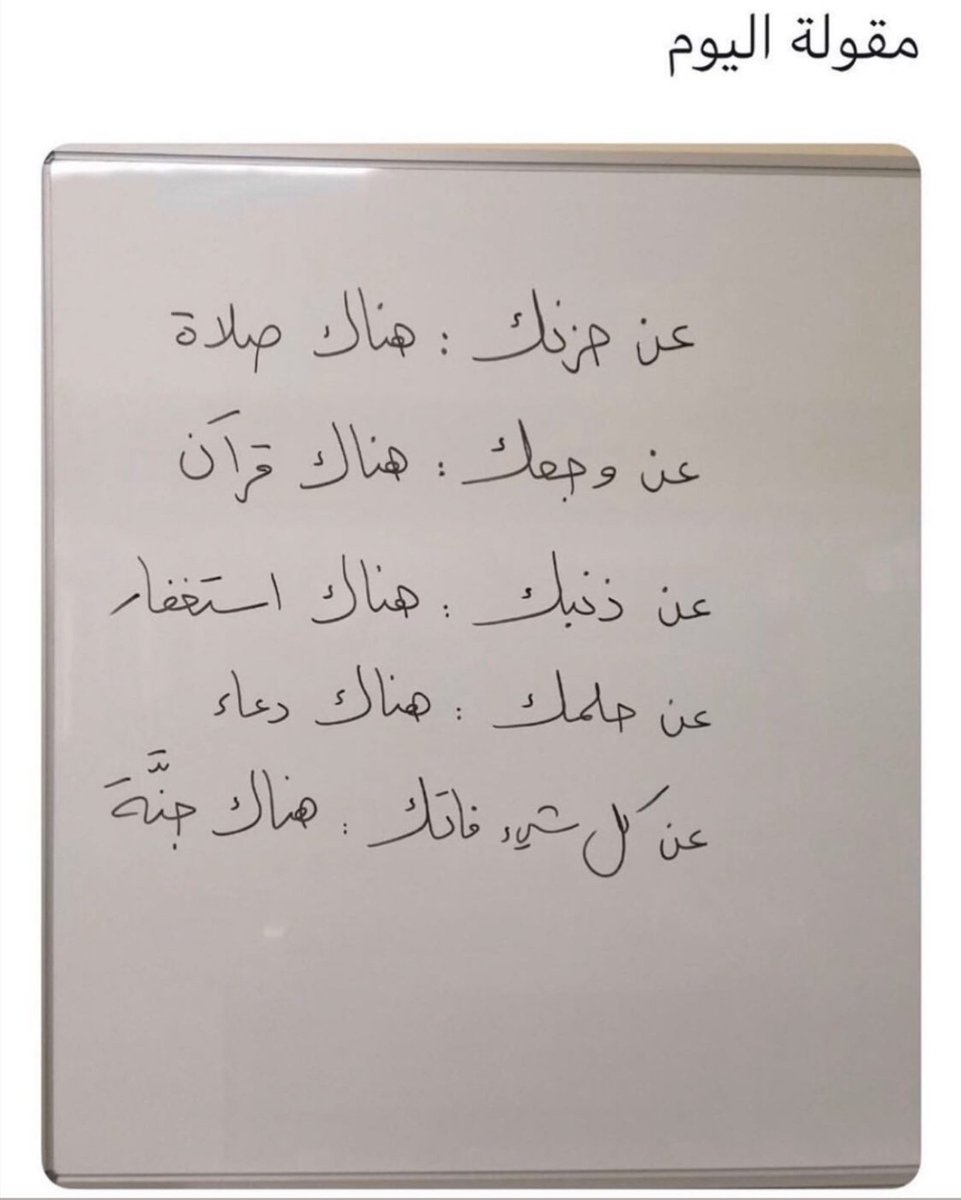 مقولة اليوم
عن حزنك : هناك صلاة
عن وجعك : هناك قرآن
عن ذنبك : هناك استغفار
عن حلمك : هناك دعاء
عن كل شيء فاتك : هناك جنَّة